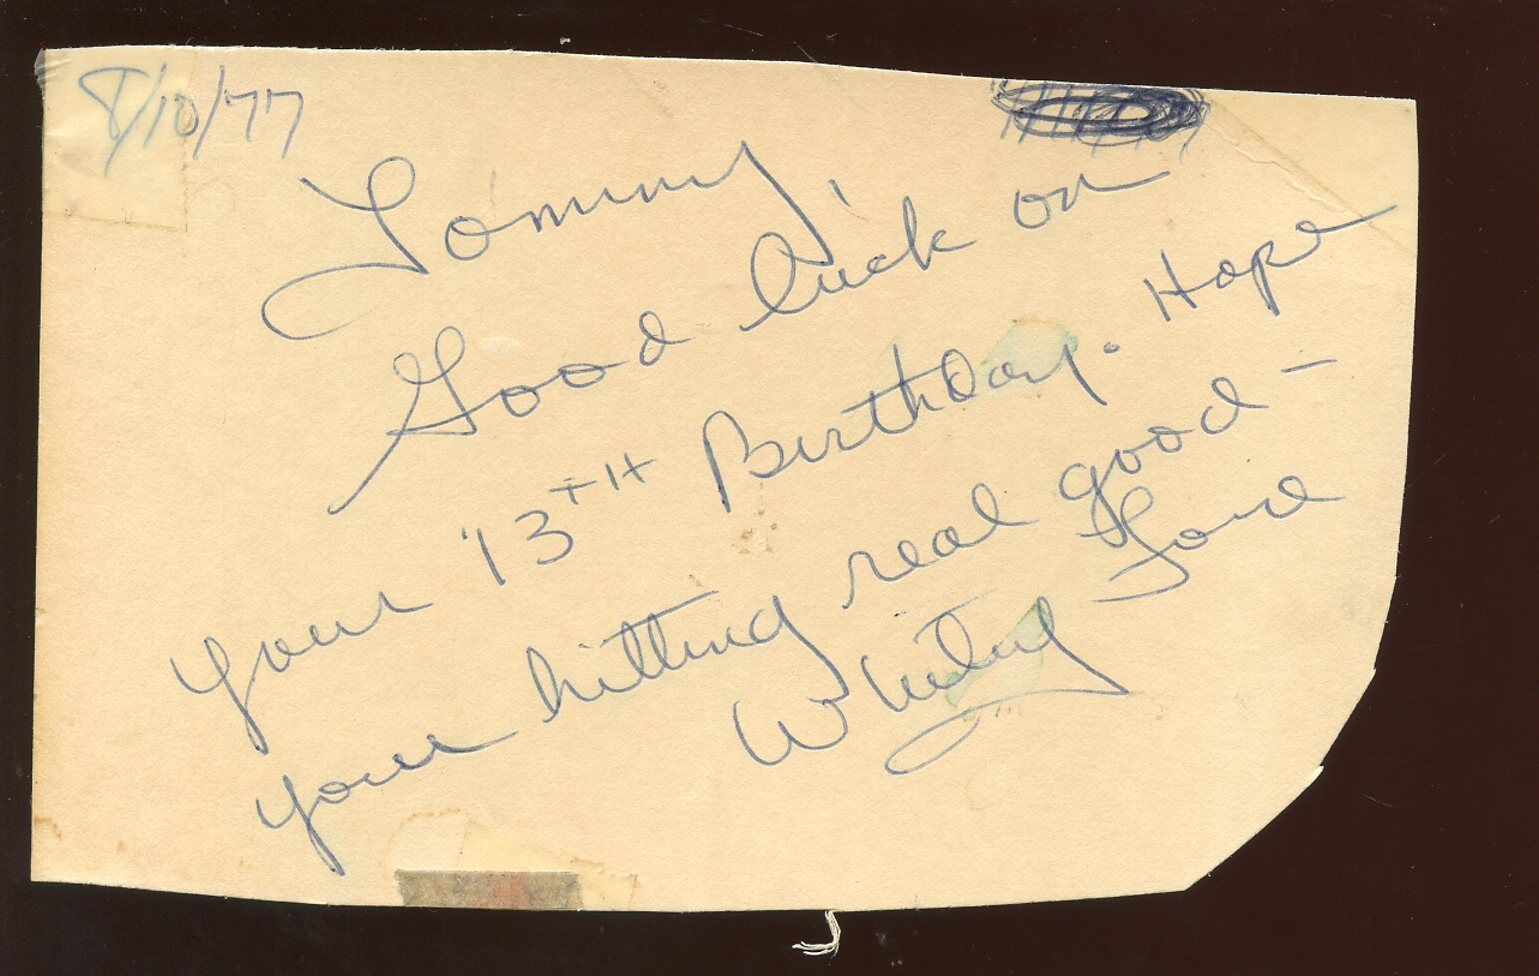 8/10/77
Tommy,
Good luck on
your 13TH Birthday. Hope
your hitting real good –
Whitey Ford